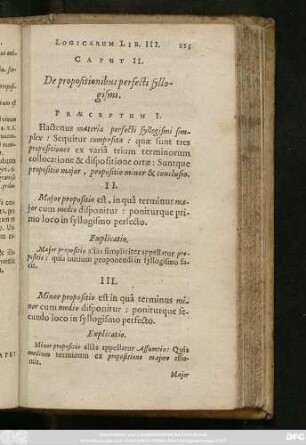 LOGICARUM LIB. III. 223
CAPUT II.
De propositionibus perfecti syllo-
gismi.
PRÆCEPTUM I.
Hactenus materia perfecti syllogismi sim-
plex: Sequitur composita: quæ sunt tres
propositiones ex varia trium terminorum
collocatione & dispositione ortæ: Suntque
propositio major, propositio minor & conclusio.
II.
Major propositio est, in quâ terminus ma-
jor cum medio disponitur: poniturque pri-
mo loco in syllogismo perfecto.
Explicatio.
Major propositio alias simpliciter appellatur pro-
positio: quia initium proponendi in syllogismo fa-
cit.
III.
Minor propositio est in quâ terminus mi-
nor cum medio disponitur: poniturque se-
cundo loco in syllogismo perfecto.
Explicatio.
Minor propositio aliàs appellatur Assumtio: Quia
medium terminum ex propositione majore assu-
mit.
Major